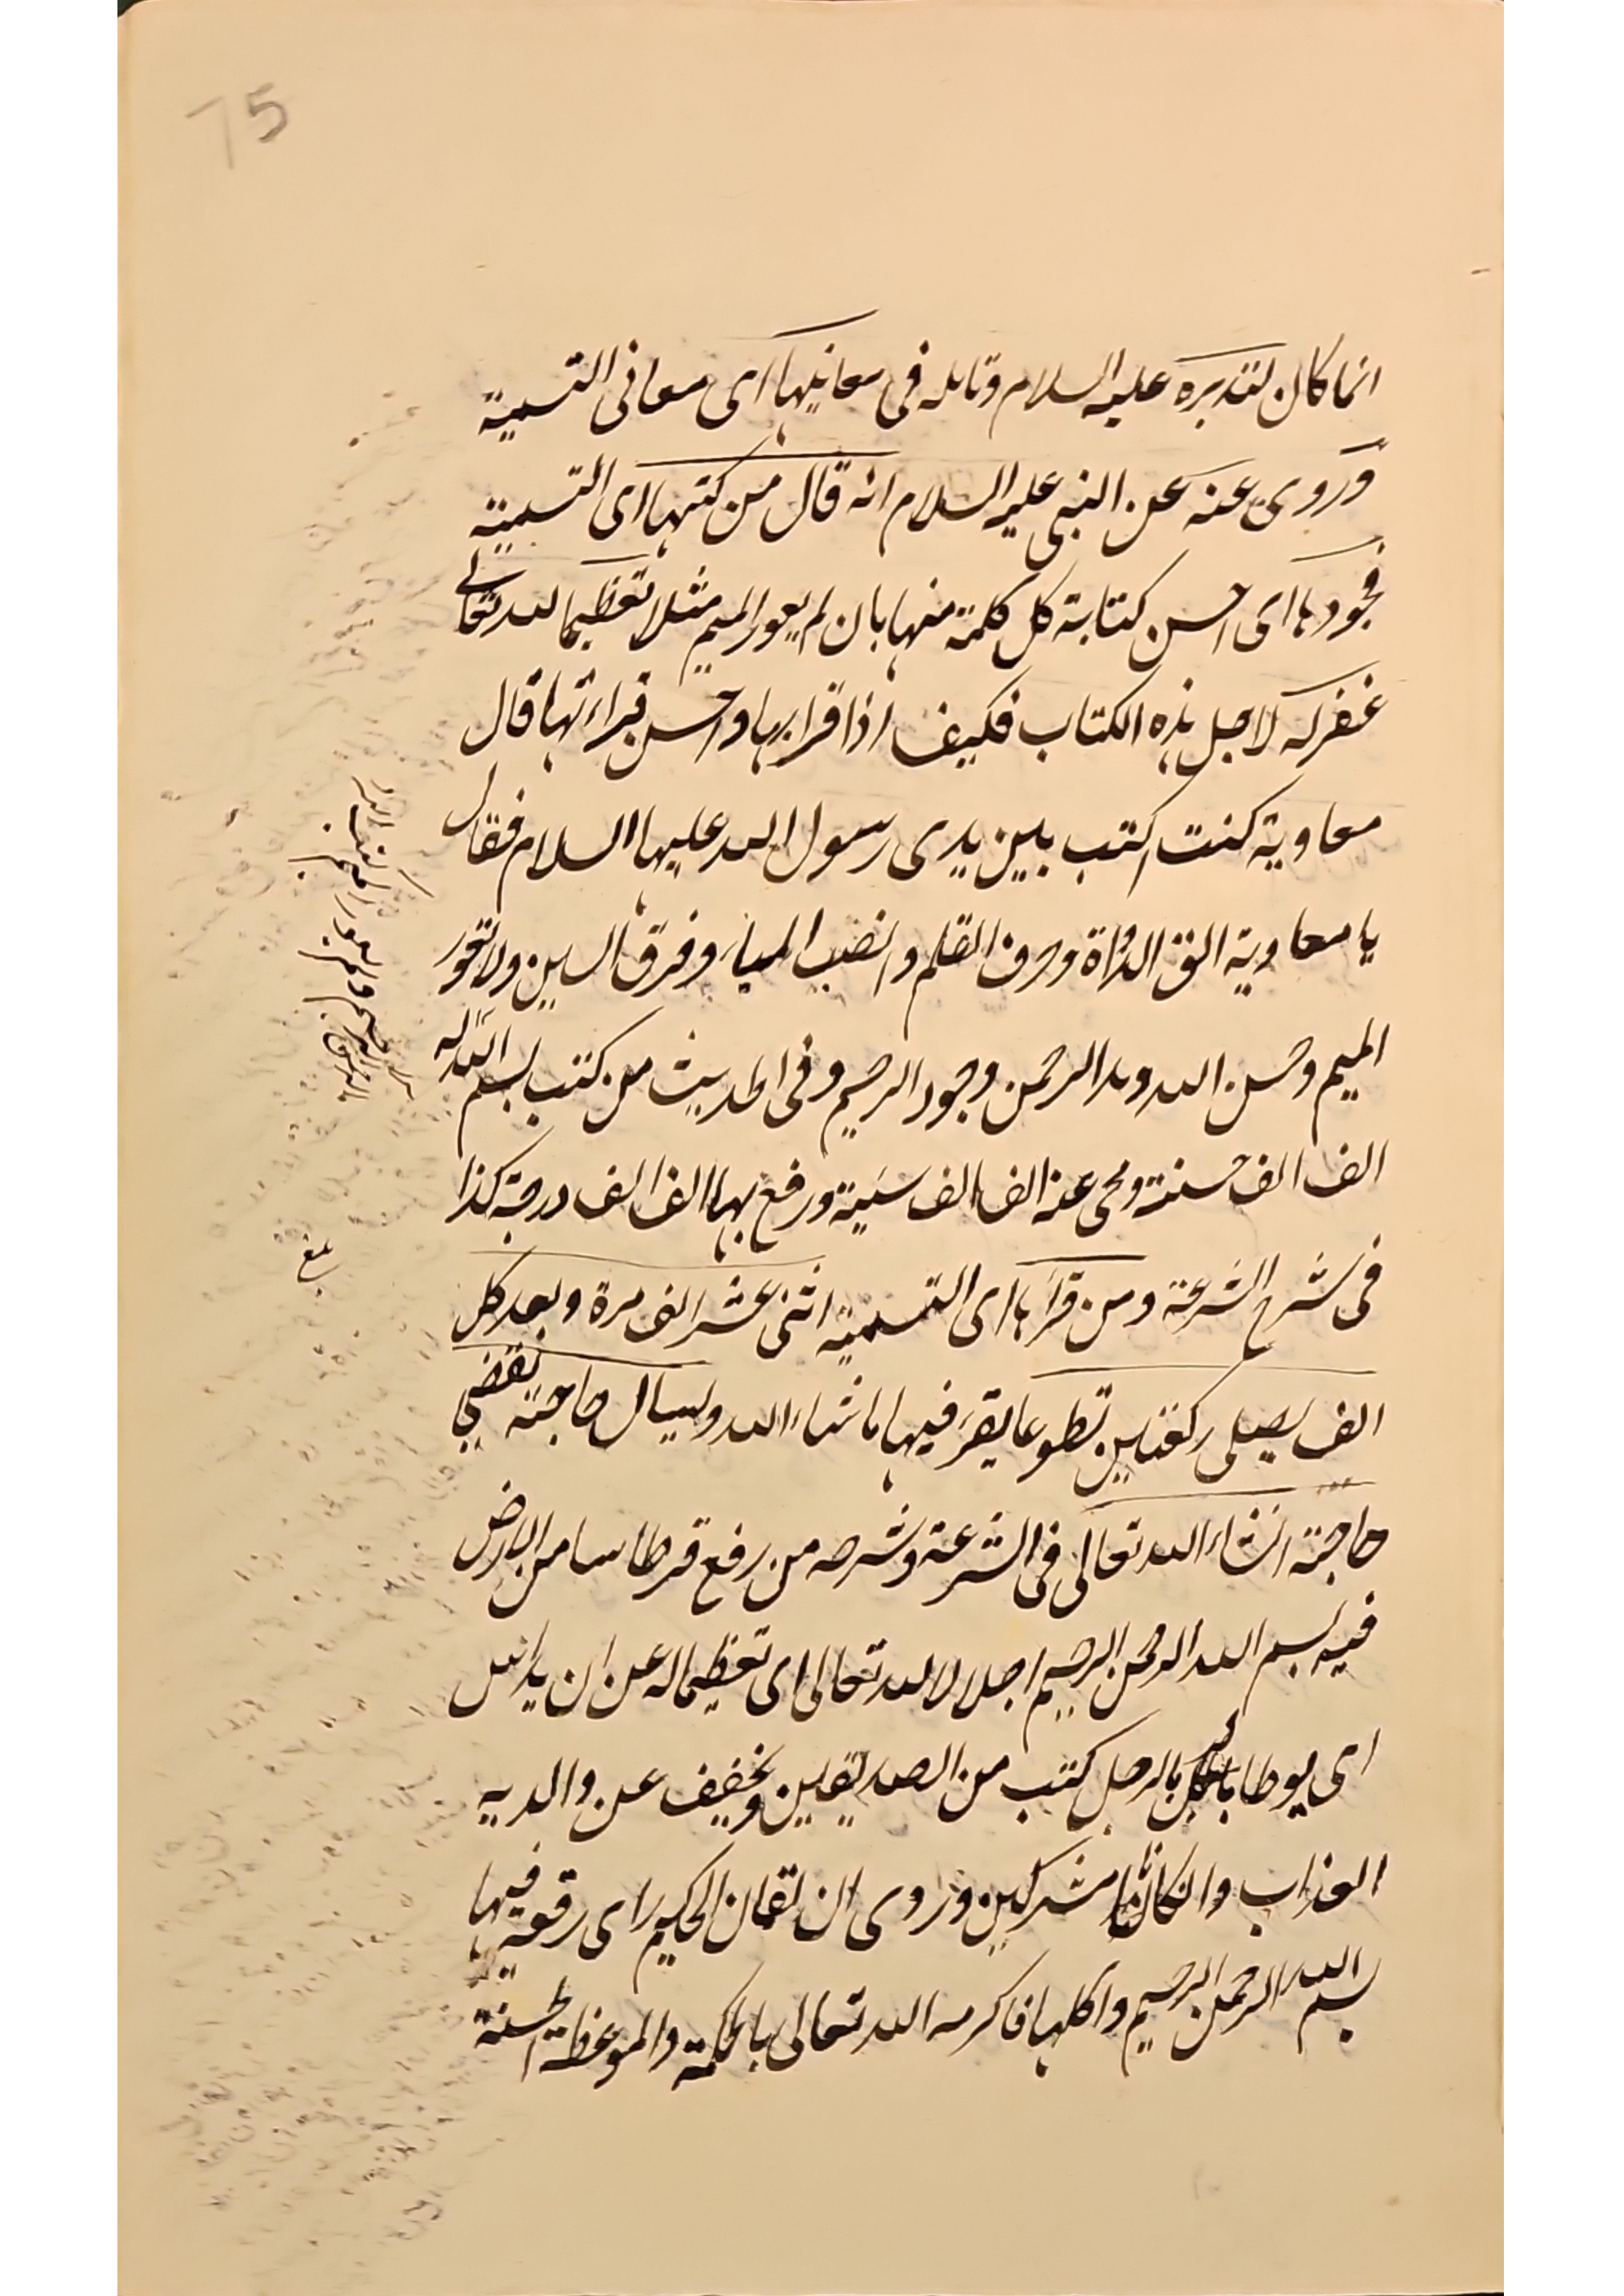 75
انما كان لتدبره عليه السلام وتامله فى معانيها اى معانى التسمية
وروى عنه عن النبى عليه السلام انه قال من كتبها اى التسمية
فجودها اى احسن كتابة كل كلمة منها بان لم يعور الميم مثلا تعظيما لله تعالى
غفر له لاجل هذه الكتاب فكيف اذا قرا بها واحسن قراءتها قال
معاوية كنت اكتب بين يدى رسول الله عليها السلام فقال
يا معاوية الق الدواة وحرف القلم وانصب الباء وفرق السين ولا تعور
الميم وحسن الله ومد الرحمن وجود الرحيم وفى الحديث من كتب بسم الله له
الف الف حسنة ومحى عنه الف الف سيئة ورفع بها الف الف درجة كذا
فى شرح الشرعة ومن قرأها اى التسمية اثنى عشر الف مرة وبعد كل
الف يصلى ركعتين تطوعا يقرء فيها ما شاء الله ويسال حاجته تقضى
حاجته انشاء الله تعالى فى الشرعة وشرحه من رفع قرطاسا من الارض
فيه بسم الله الرحمن الرحيم اجلالا لله تعالى اى تعظيما له عن ان يداس
اى يوطا بالرجل كتب من الصديقين ويخفف عن والديه
العذاب وان كانا مشركين وروى ان لقمان الحكيم راى رقعة فيها
بسم الله الرحمن الرحيم واكلها فاكرمه الله تعالى بالحكمة والموعظة الحسنة